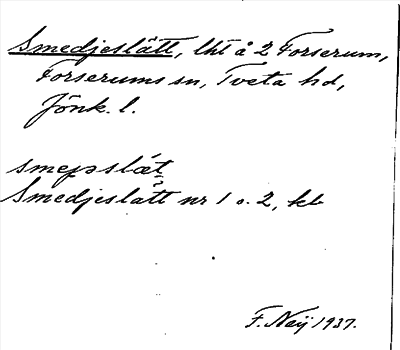 Smedjeslätt, lht å 2 Forserum,
Forserums sn, Tveta hd,
Jönk. l.
smejəslæt
Smedjeslätt nr 1 o. 2, kb
F. Neij 1937.